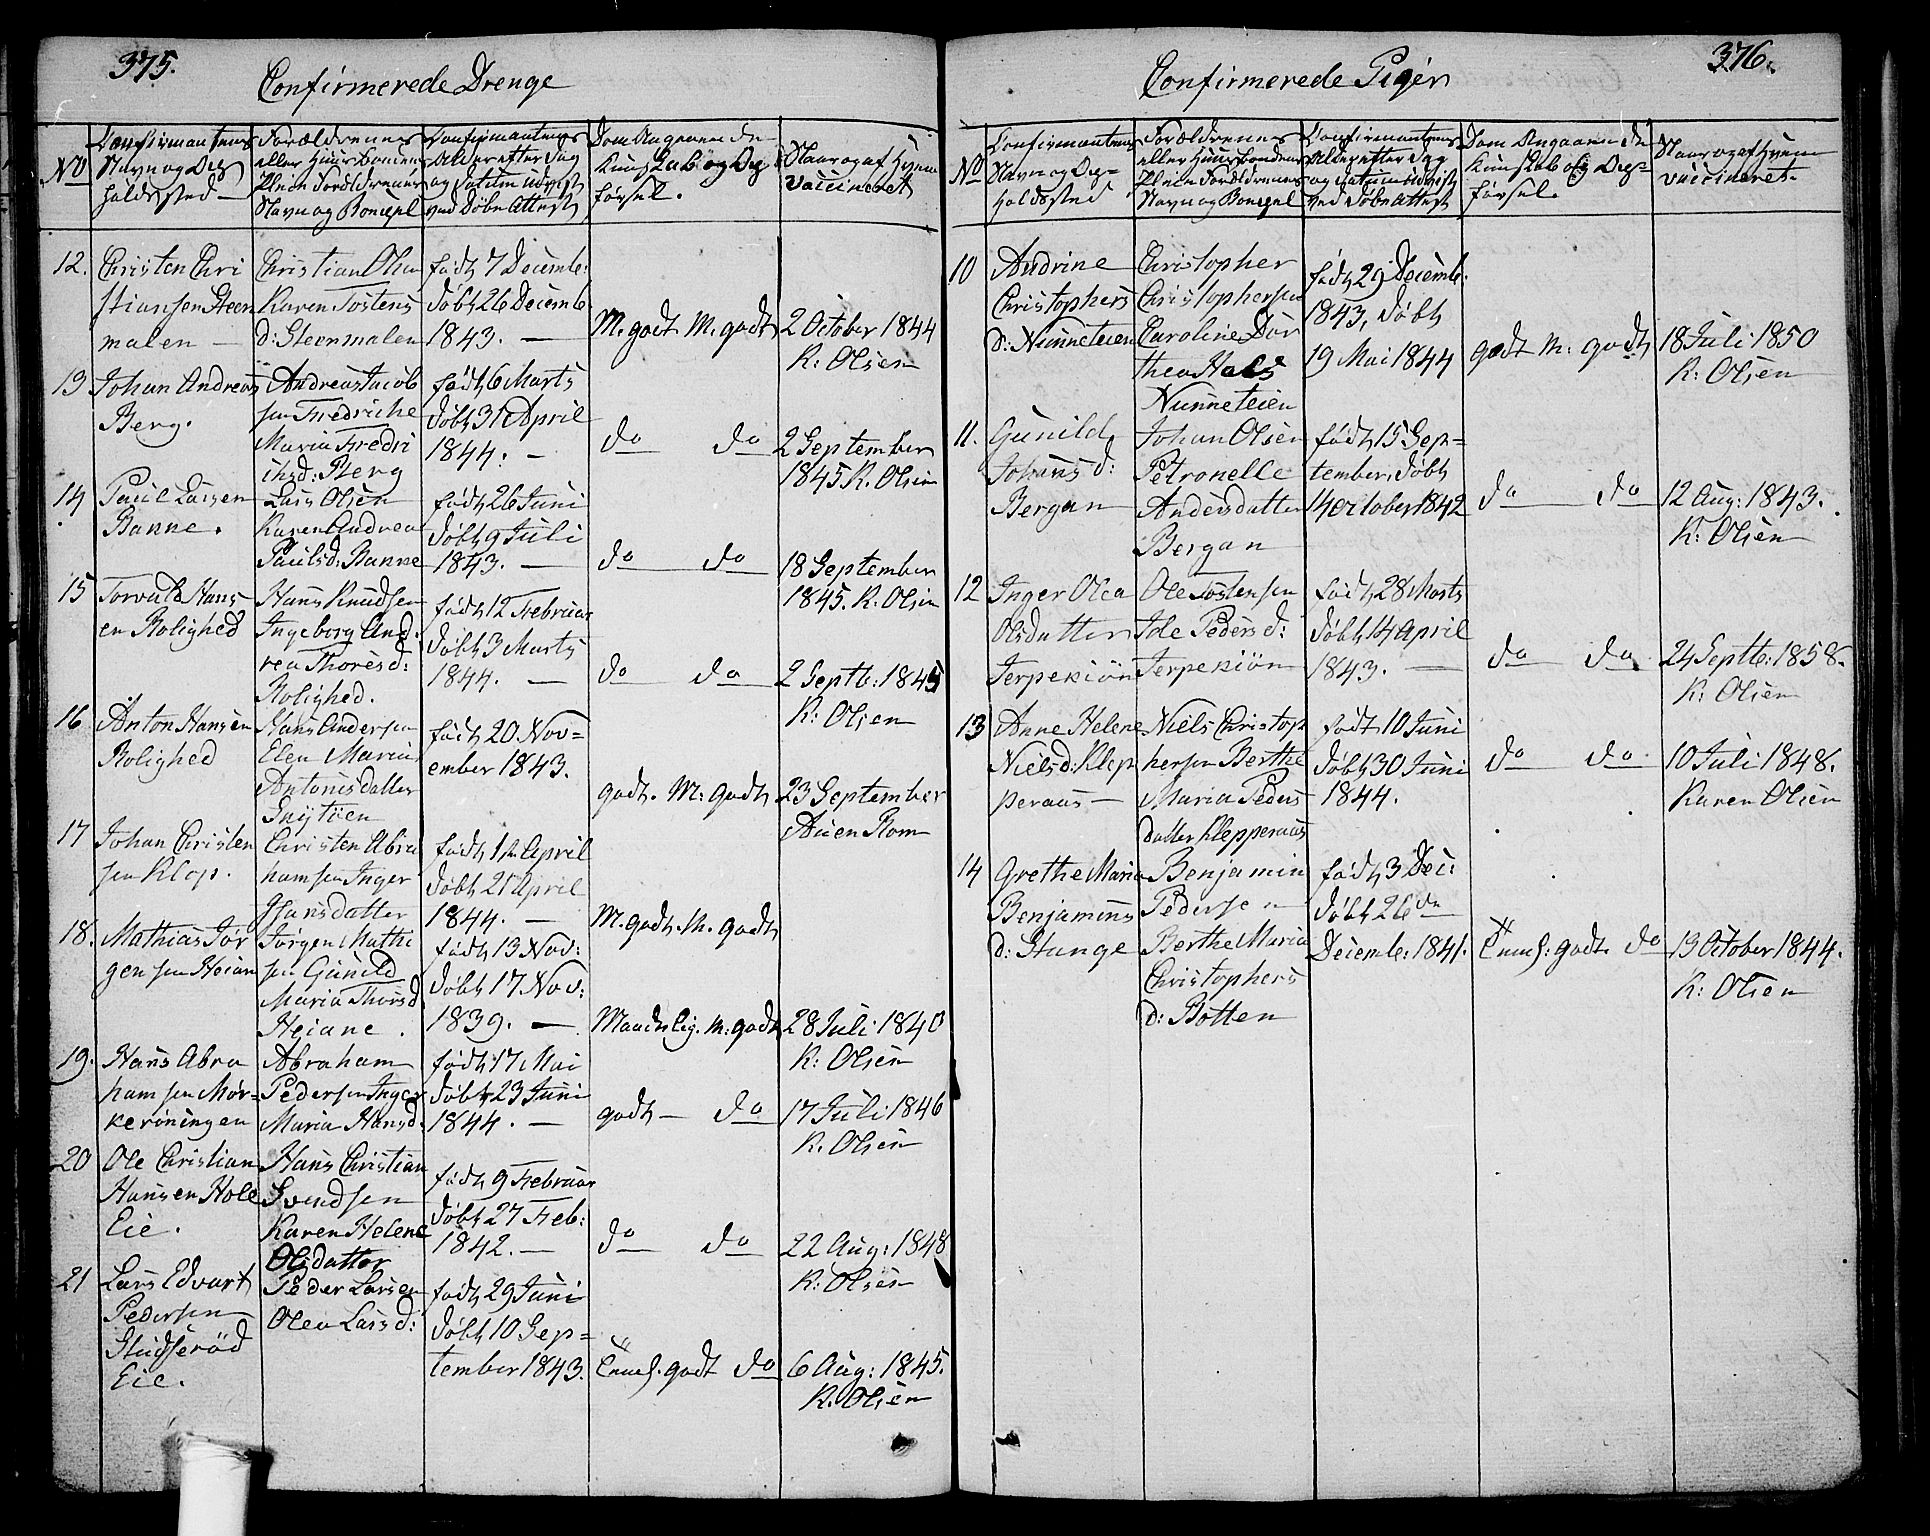 375.
Confirmerede Drenge
No
Confirmantens
Navn og Op
holdssted
Forældrenes
eller Huusbonens
Pleie Forældrenes
Navn og Boepæl
Confirmantens
Alder efter Dag
og Datum udvist
ved Døbe Attest
Dom Angaaende
Kunskab og Op
førsel.
Naar og af Hvem
vaccineret
12.
Christen Chri
stiansen Steen
malen —
Christian Olsen
Karen Tostens
d: Steenmalen
født 7 Decemb:
døbt 26 Decemb
1843. —
M. godt M. godt
2 October 1844
K: Olsen
13
Johan Andreas
Berg.
Andreas Jacob
sen Fredriche
Maria Fredri
chsd: Berg
født 6 Marts
døbt 31 April
1844. —
do do
2 September
1845 K. Olsen
14
Paul Larsen
Banne.
Lars Olsen
Karen Andrea
Paulsd: Banne
født 26 Juni
døbt 9 Juli
1843. —
do do
18 September
1845. K. Olsen
15
Torvald Hans
en Rolighed
Hans Knudsen
Ingeborg And
rea Thoresd:
Rolighed.
født 12 Februar
døbt 3 Marts
1844. —
do do
2 Septb: 1845
K: Olsen
16
Anton Hansen
Rolighed
Hans Andersen
Elen Maria
Antonisdatter
født 20 Nov=
ember 1843.
godt. M: godt
23 September
Rom
17
Johan Christen
sen Klop.
Christen Abra
hamsen Inger
Hansdatter
født 1ste April
døbt 21 April
1844. —
M. godt. M. godt
18.
Mathias Jør
gensen Heian
Jørgen Mathi
sen Gunild
Maria Thorsd
Heiane.
født 13 Nov:
døbt 17 Nov:
1839. —
Maadelig. M: godt
28 Juli 1840
K: Olsen
19.
Hans Abra
hamsen Mør-
kerøningen
Abraham
Pedersen Inger
Maria Hansd.
født 17 Mai
døbt 23 Juni
1844. —
godt — do
17 Juli 1846
K. Olsen
20
Ole Christian
Hansen Hole
Eie.
Hans Christian
Svendsen
Karen Helene
Olsdatter
født 9 Februar
døbt 27 Feb:
1842. —
do do
22 Aug: 1848
K: Olsen
21
Lars Edvart
Pedersen
Studserød
Eie.
Peder Larsen
Olea Larsd:
født 29 Juni
døbt 10 Sep=
tember 1843.
godt do
6 Aug: 1845.
K. Olsen
376.
Confirmerede Piger
No
Confirmantens
Navn og Op=
holdssted
Forældrenes
eller Huusbondens
Pleie Forældrenes
Navn og Boepæl
Confirmantens
Alder efter Dag
og Datum udvist
ved Døbe Attest
Dom Angaaende
Kunskab og Op=
førsel.
Naar og af Hvem
vaccineret.
10
Andrine
Christophers
d: Nunneteien
Christopher
Christophersen
Caroline Dor
thea Hals
Nunneteien
født 29 Decemb:
1843, døbt
19 Mai 1844
godt M: godt
18 Juli 1850
K: Olsen
11.
Gunild
Johans d:
Bergan
Johan Olsen
Petronelle
Andersdatter
Bergan
født 15 Sep=
tember, døbt
14 October 1842
do do
12 Aug: 1843.
K: Olsen
12
Inger Olea
Olsdatter
Jerpekiön
Ole Tostensen
Ide Peders d:
Jerpekiön
født 28 Marts
døbt 14 April
1843. —
do do
24 Septb: 1858.
K: Olsen
13
Anne Helene
Nielsd: Klep
peraas —
Niels Christop
hersen Berthe
Maria Peders
datter Klepperaas
født 10 Juni
døbt 30 Juni
1844.
do do
10 Juli 1848.
Karen Olsen
14
Grethe Maria
Benjamins
d: Stange
Benjamin
Pedersen
Berthe Maria
Christophers
d: Botten
født 3 Dec:
døbt 26 do
Decemb: 1841.
godt do
19 October 1844.
K: Olsen